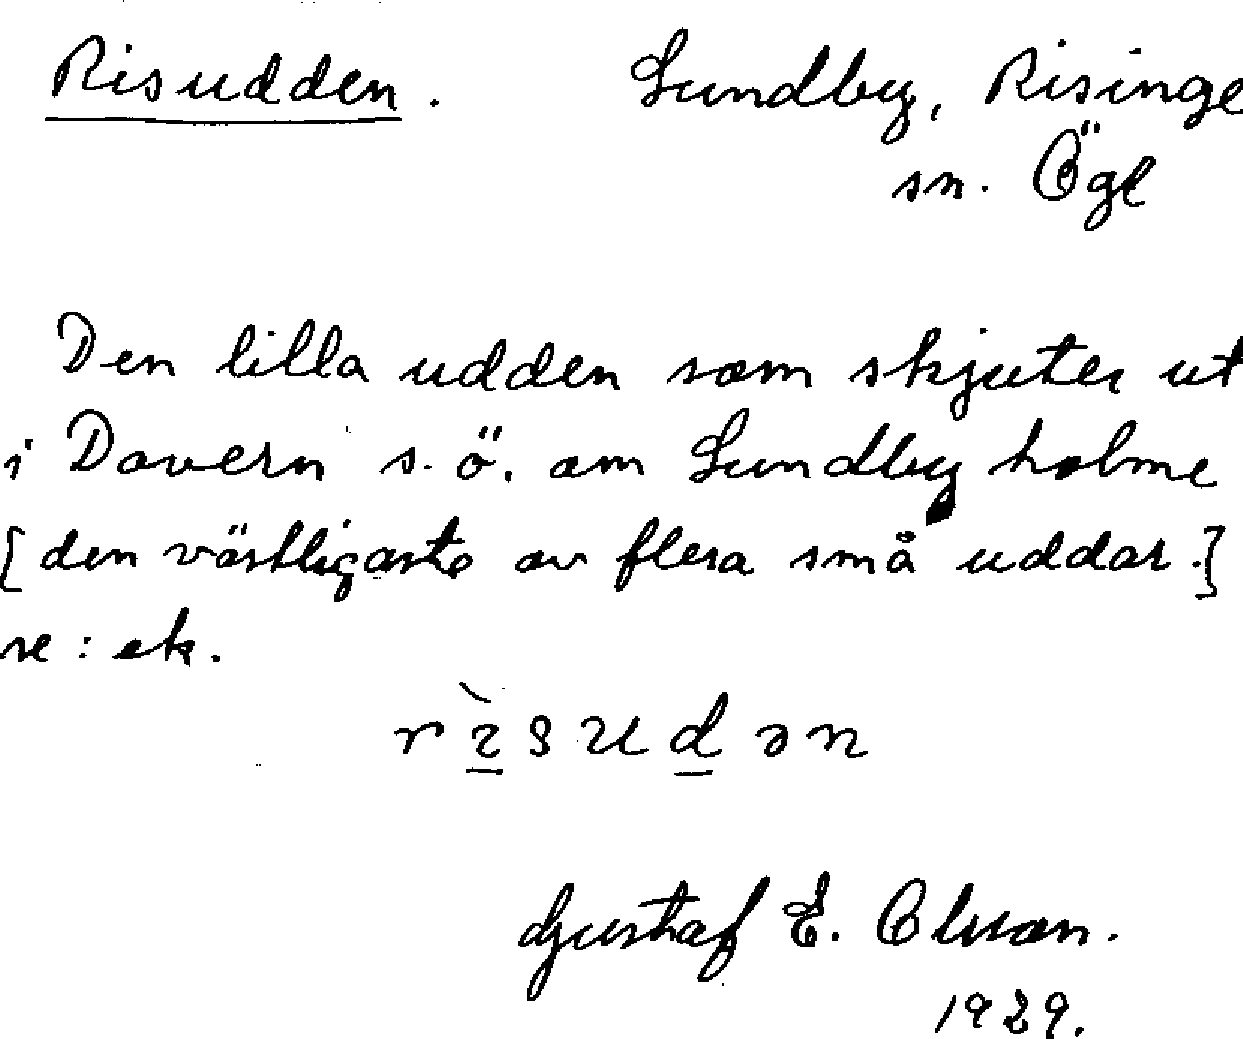 Risudden. Lundby, Risinge
sn. Ögl
Den lilla udden som skjuter ut
i Dovern s.ö. om Lundby holme
[den västligaste av flera små uddar.]
se: ek.
rìsudən
Gustaf E. Olsson.
1929.